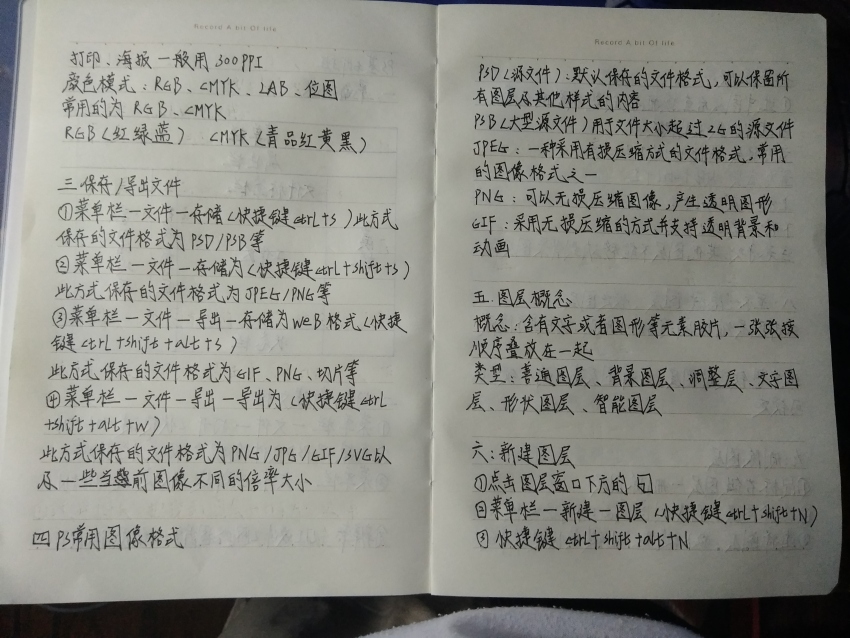 Record A bit Of life
打印、海报一般用300PPI
颜色模式：RGB、CMYK、LAB、位图
常用的为RGB、CMYK
RGB（红绿蓝） CMYK（青品红黄黑）
三.保存/导出文件
①菜单栏一文件一存储（快捷键ctrl+s）此方式
保存的文件格式为PSD/PSB等
②菜单栏一文件一存储为（快捷键ctrl+shift+s）
此方式保存的文件格式为JPEG/PNG等
③菜单栏一文件一导出一存储为WeB格式（快捷
键ctrl+shift+alt+s）
此方式保存的文件格式为GIF、PNG、切片等
④菜单栏一文件一导出一导出为（快捷键ctrl
+shift+alt+W）
此方式保存的文件格式为PNG/JPG/GIF/SVG以
及一些当前图像不同的倍率大小
四 PS常用图像格式
Record A bit Of life
PSD（源文件）：默认保存的文件格式，可以保留所
有图层及其他样式的内容
PSB（大型源文件）用于文件大小超过2G的源文件
JPEG：一种采用有损压缩方式的文件格式，常用
的图像格式之一
PNG：可以无损压缩图像，产生透明图形
GIF：采用无损压缩的方式并支持透明背景和
动画
五.图层概念
概念：含有文字或者图形等元素胶片，一张张按
顺序叠放在一起
类型：普通图层、背景图层、调整层、文字图
层、形状图层、智能图层
六：新建图层
①点击图层窗口下方的
②菜单栏一新建一图层（快捷键ctrl+shift+N）
③快捷键ctrl+shift+alt+N